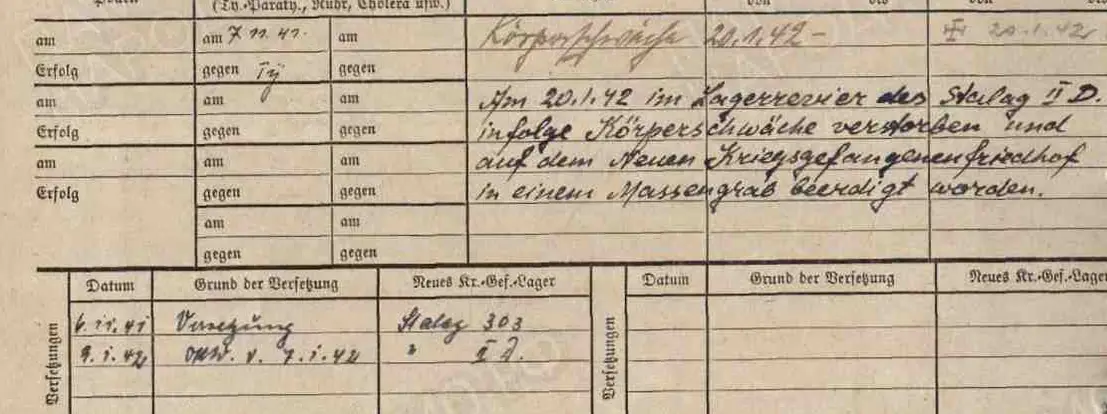 (Ty.-Paraty., Ruhr, Cholera usw.)
am am 7 11. 41. am Körperschwäche 20.1.42 – 20.1.42
Erfolg gegen Ty gegen
am am am Am 20.1.42 im Lagerrevier des Stalag II D.
Erfolg gegen gegen infolge Körperschwäche verstorben und
am am am auf dem Neuen Kriegsgefangenenfriedhof
Erfolg gegen gegen in einem Massengrab beerdigt worden.
am am
gegen gegen
Versetzungen Datum Grund der Versetzung Neues Kr.-Gef.-Lager Versetzungen Datum Grund der Versetzung Neues Kr.-Gef.-Lager
6.11.41 Versetzung Stalag 303
9.1.42 OKW. v. 7.1.42 " II D.